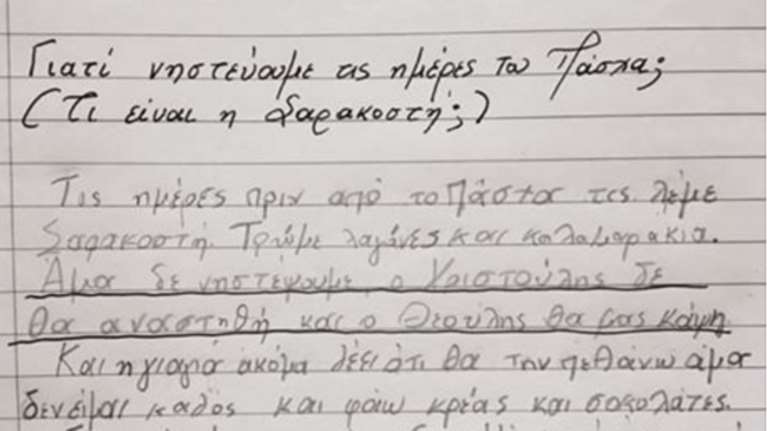 Γιατί νηστεύουμε τις ημέρες του Πάσχα;
(Τι είναι η Σαρακοστή;)
Τις ημέρες πριν από το Πάστα τες λέμε
Σαρακοστή. Τρώμε λαγάνες και καλαμαρακια.
Άμα δε νηστέψουμε, ο Χριστούλης δε
θα αναστηθή και ο Θεούλης θα μας κάψη
Και η γιαγιά ακόμα λέει ότι θα την πεθάνω άμα
δεν είμαι καλός και φάω κρέας και σοκολάτες.